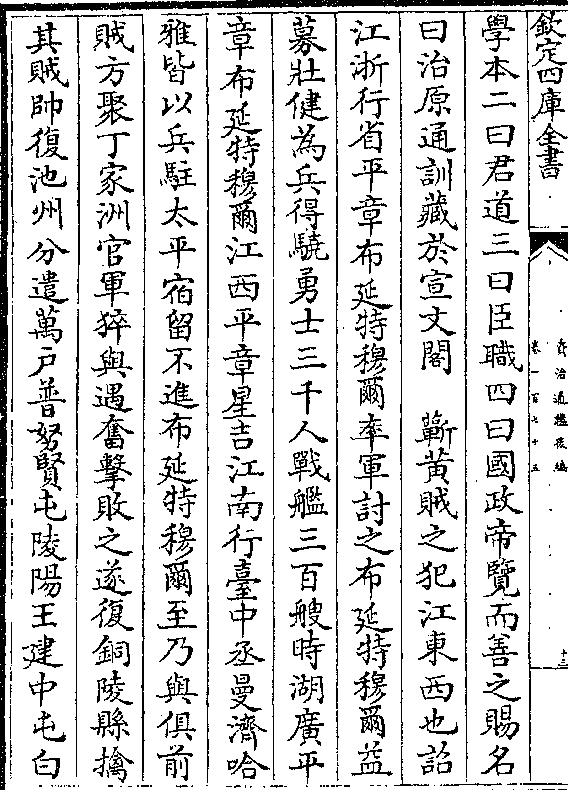 欽定四庫全書
資治通鑑後編
卷一百七十五
十三
學本二曰君道三曰臣職四曰國政帝覽而善之賜名
曰治原通訓藏於宣文閣　蘄黃賊之犯江東西也詔
江浙行省平章布延特穆爾率軍討之布延特穆爾益
募壯健為兵得驍勇士三千人戰艦三百艘時湖廣平
章布延特穆爾江西平章星吉江南行臺中丞曼濟哈
雅皆以兵駐太平宿留不進布延特穆爾至乃與俱前
賊方聚丁家洲官軍猝與遇奮擊敗之遂復銅陵縣擒
其賊帥復池州分遣萬戶普努賢屯陵陽王建中屯白